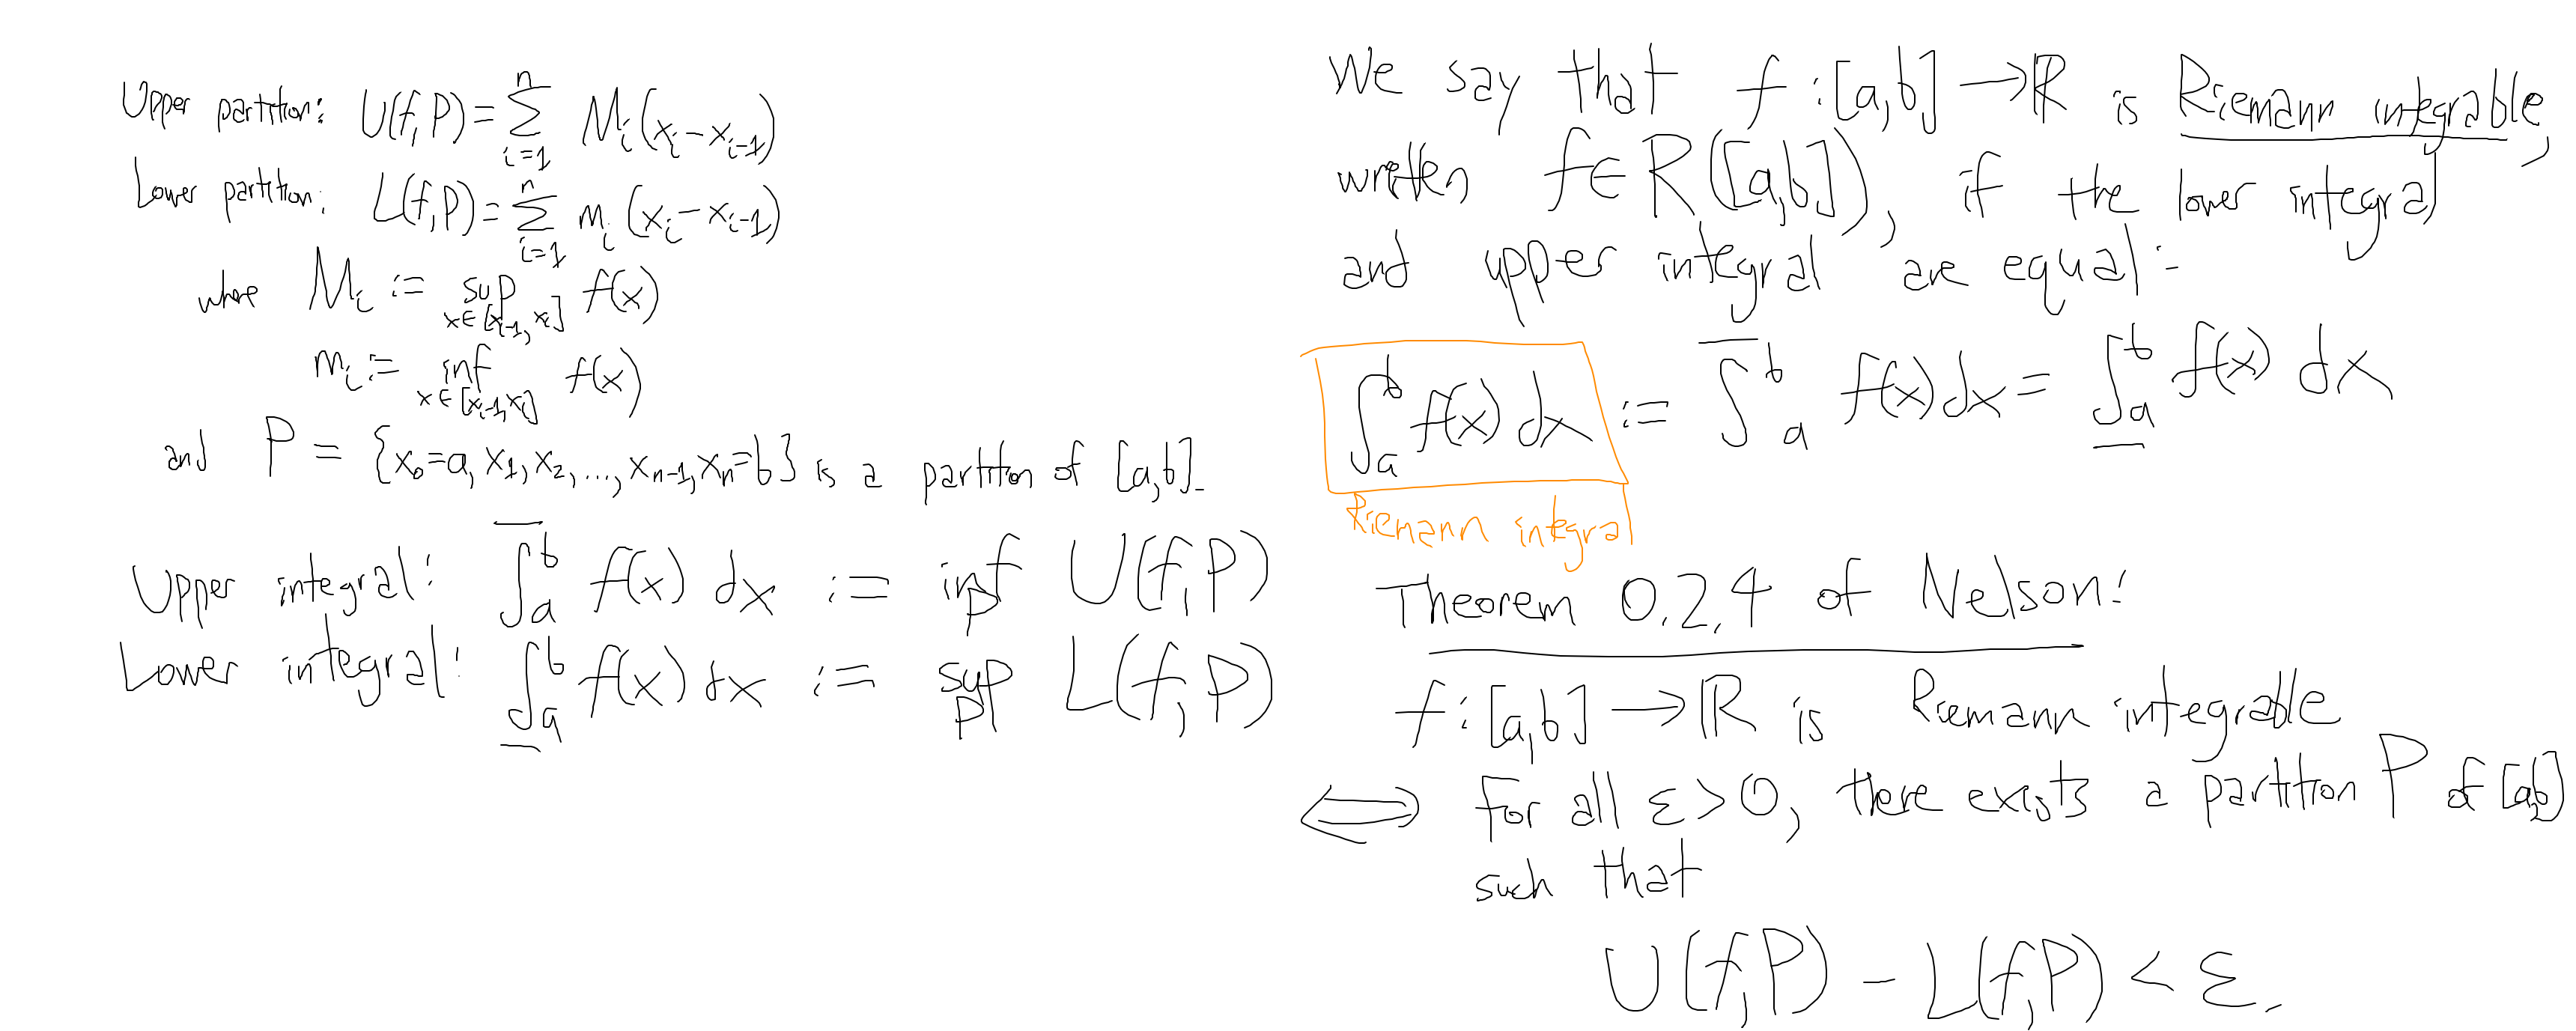 Upper partition: U(f,P) = ∑_{i=1}^{n} M_i (x_i − x_{i−1})
Lower partition: L(f,P) = ∑_{i=1}^{n} m_i (x_i − x_{i−1})
where M_i := sup_{x∈[x_{i−1}, x_i]} f(x)
m_i := inf_{x∈[x_{i−1}, x_i]} f(x)
and P = {x_0=a, x_1, x_2, ..., x_{n−1}, x_n=b} is a partition of [a,b].
Upper integral: \overline{∫}_a^b f(x) dx := inf_P U(f,P)
Lower integral: \underline{∫}_a^b f(x) dx := sup_P L(f,P)
We say that f:[a,b] → ℝ is Riemann integrable,
written f∈R([a,b]), if the lower integral
and upper integral are equal:
∫_a^b f(x) dx := \overline{∫}_a^b f(x) dx = \underline{∫}_a^b f(x) dx
Riemann integral
Theorem 0.2.4 of Nelson:
f:[a,b] → ℝ is Riemann integrable
⟺ For all ε>0, there exists a partition P of [a,b]
such that
U(f,P) − L(f,P) < ε.